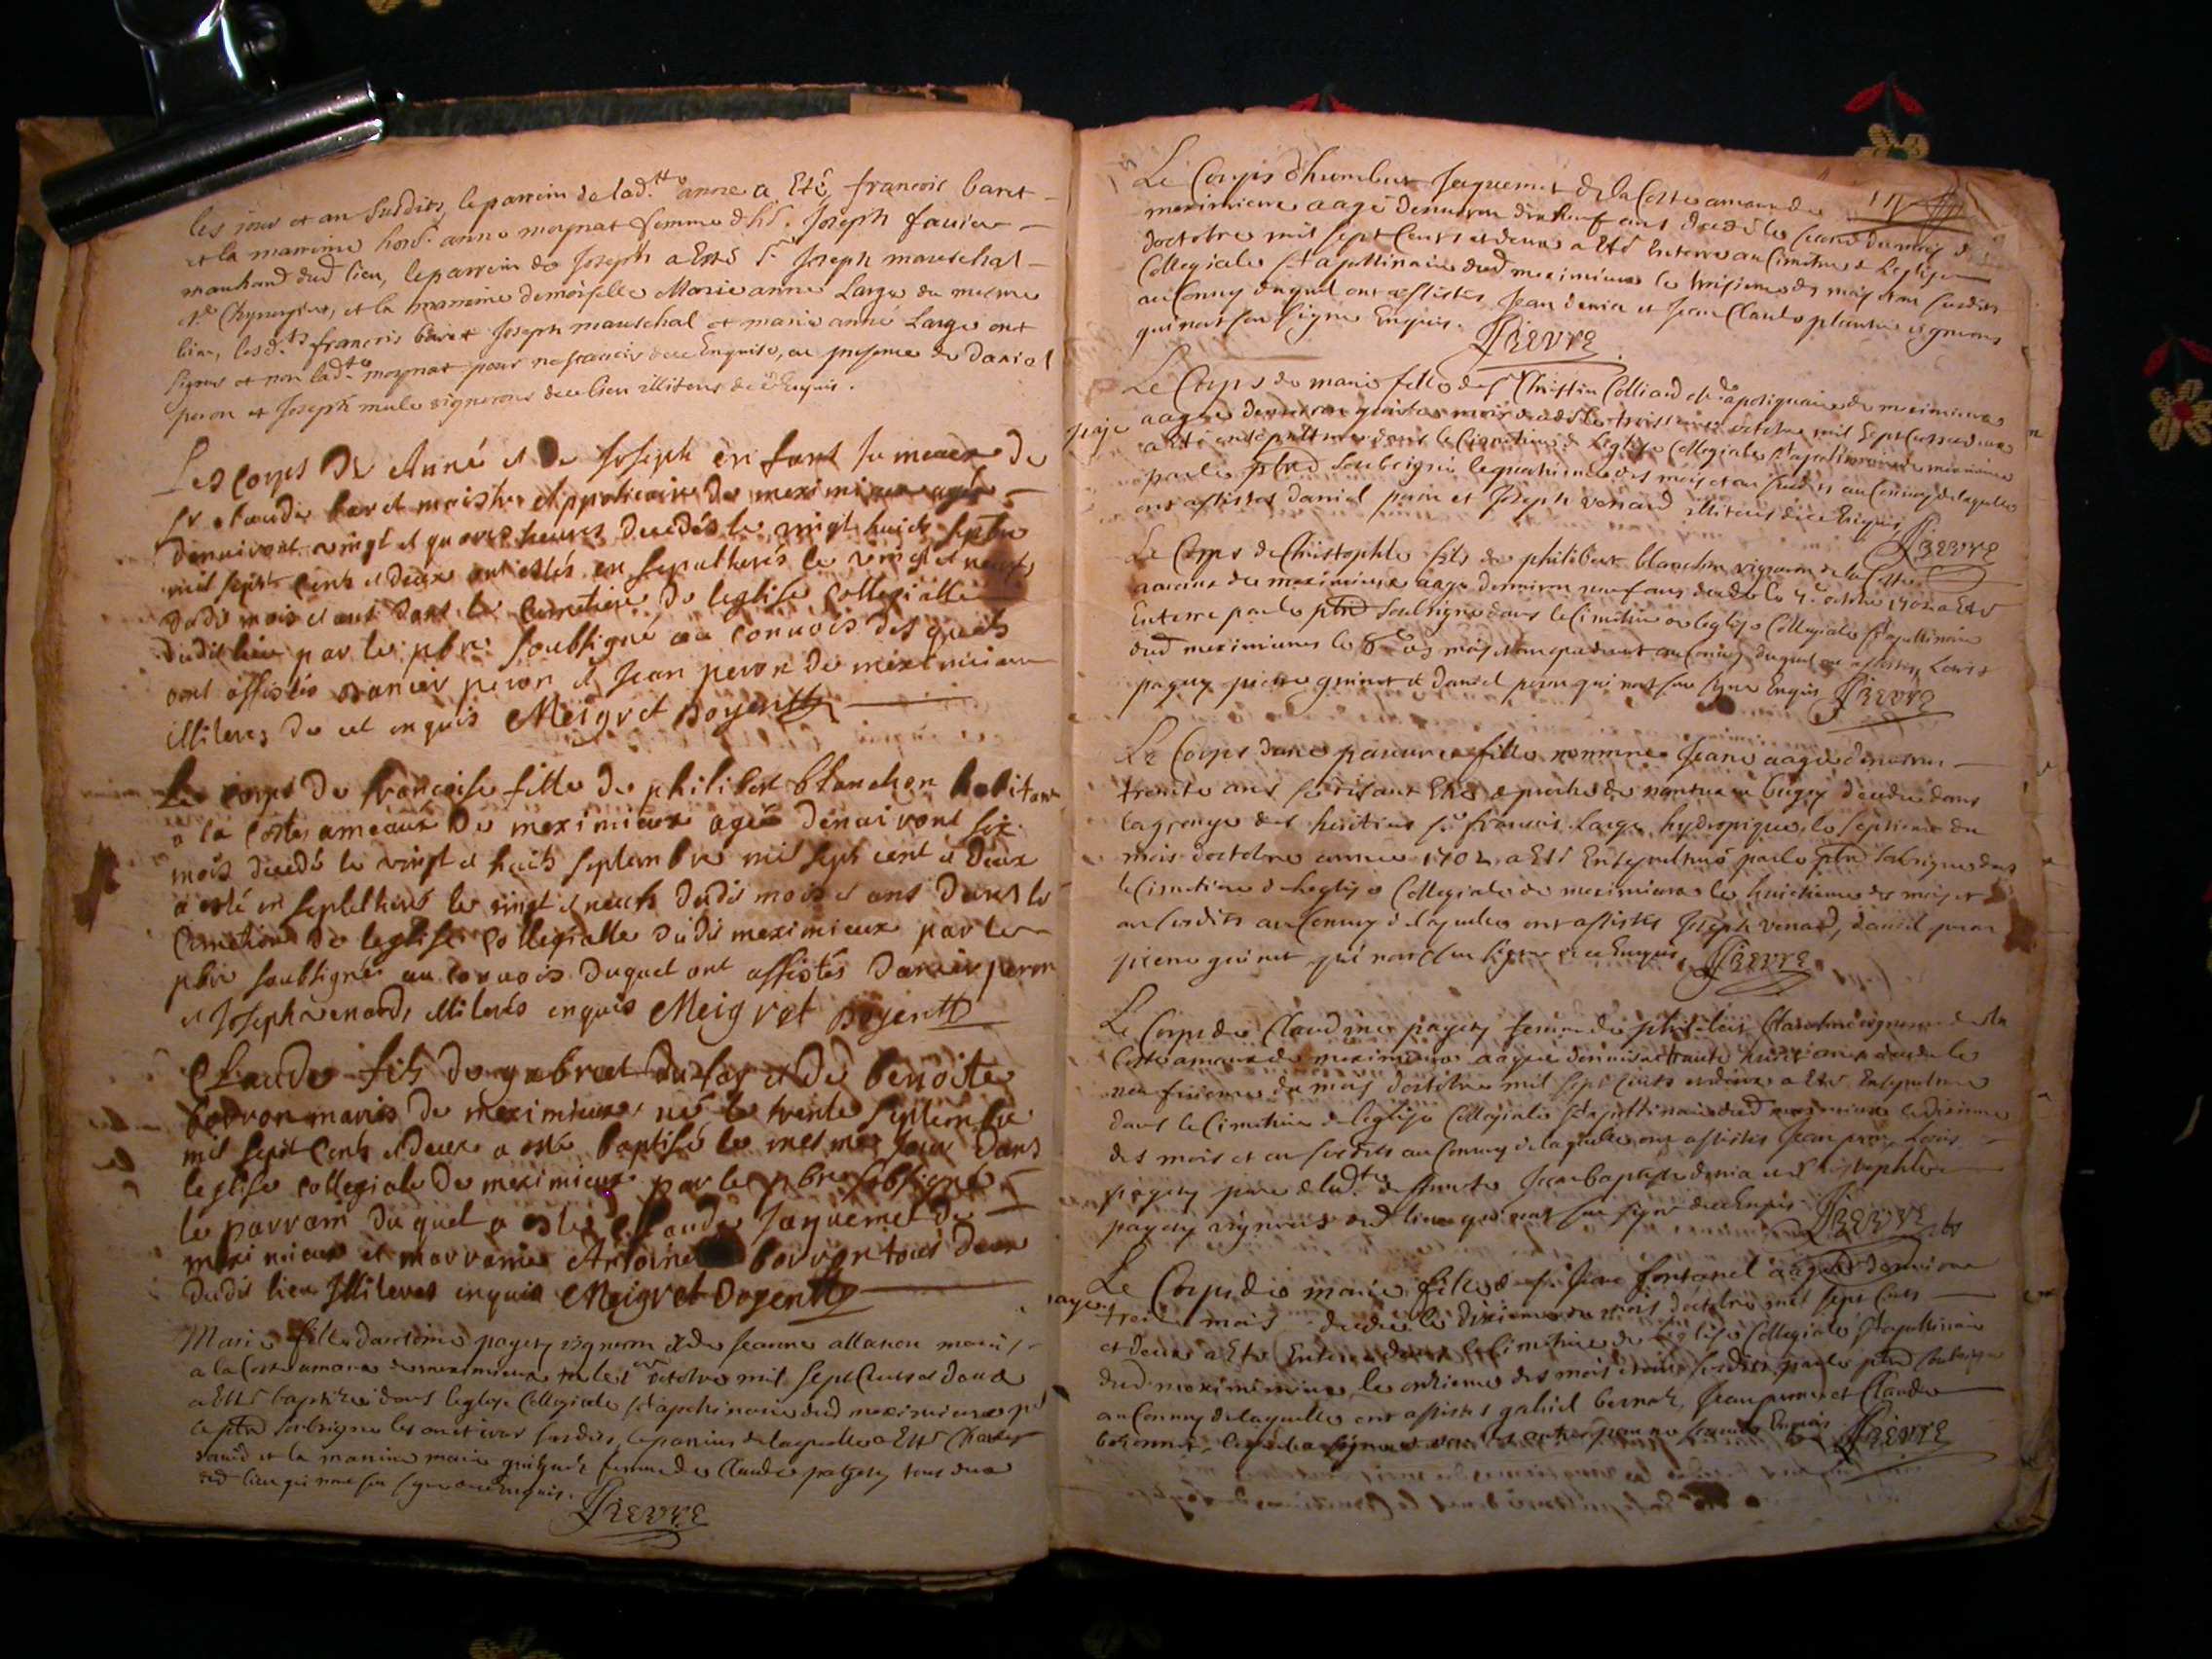 les jour et an susdits, le parrein de lad.tte anne a Eté francois baret
et la marreine hon.e anne moynat femme d'h.e Joseph favier
marchand dud lieu, le parrein de Joseph a Esté S.r Joseph mareschal
M.e Chyrurgien, et la marreine demoiselle Marie anne Large du mesme
lieu, lesd.ts francois baret Joseph mareschal et marie anne Large ont
signés et non lad.tte moynat pour ne scavoir de ce Enquise, en presence de Daniel
peron et Joseph mule vignerons de ce lieu illiteres de ce Enquis.
Les corps de Anné et de Joseph enfant Jumeaux de
Sr claude baret maistre appoticaire de meximieux agés
denviront vingt et quatre heures decedés le vingt huict septbre
mil sept cents et deux ont estés ensepulturés le vingt et neufs
dudit mois et ans dans le cimetiere de leglise collegialle
dudit lieu par le pbre soubsigné au convois desquels
ont assistés Daniel peron et Jean peron de meximieux
illiteres de cet enquis Meigret Doyent
Le corps de francoise fille de philibert blanchon habitant
a la coste ameaux de meximieux agée denviront six
mois decedé le vingt et huict septembre mil sept cent et deux
a esté ensepulthuré le vingt et neuf dudit mois et ans dans le
cimetiere de leglise collegialle dudit meximieux par le
pbre soubsigné au convois duquel ont assistés Daniel peron
et Joseph venard, illiterés enquis Meigret Doyent
Claude fils de gabriel dufay et de benoite
borron mariés de meximieux né le trente septembre
mil sept cents et deux a esté baptisé le mesme jour dans
leglise collegiale de meximieux par le pbre sobsigné
le parrain duquel a esté claude Jaquemet de
meximieux et marraine Antoinette borron tous deux
dudit lieu Illiteres enquis Meigret Doyent
Marie fille dantoine pagety vigneron et de Jeanne allanon mariés
a la Coste amaux de meximieux née le octobre mil sept Cents et deux
a Esté baptizée dans leglise Collegiale St apolinaire dud meximieux p.r
le pbre soubsigné les an et jour susdits, le parrein de laquelle a Esté
et la marreine marie femme de Claude pagety tous deux
dud lieu qui nont sceu signer de ce enquis.
Prevre
Le Corps d'humbert Jaquemet de la Coste amaux de
meximieux aagé denviron dix neuf ans decedé le second du mois d
doctobre mil sept Cents et deux a Esté Enterré au Cimetiere de Leglise
Collegiale St apollinaire dud meximieux le troisieme des mois et an susdits
au Convoy duquel ont assistés Jean denia et Jean Claude plantin vignerons
qui nont sceu signer Enquis. Prevre
Le Corps de marie fille de S.r Christin Colliard M.e apotiquaire de meximieux
aagée denviron quinze mois decedé le troisieme octobre mil sept Cents et deux
a Esté ensepulturée dans le Cimetiere de Leglise Collegiale St apollinaire de meximieux
par le pbre soubsigné le quatrieme des mois et an susdits au Convoy de laquelle
ont assistés Daniel peron et Joseph venard illiteres de ce Enquis Prevre
Le Corps de Christophle fils de philibert blanchon vigneron de la Coste
amaux de meximieux aagé denviron neuf ans decedé le 7.e octobre 1702 a Esté
Enterré par le pbre soubsigné dans le Cimetiere de leglise Collegiale St apollinaire
dud meximieux le 8.e des mois et an que dessus au Convoy duquel ont assistés Louis
pagety pierre guinet et Daniel peron qui nont sceu signer Enquis Prevre
Le Corps dune pauvre fille nommée Jeane aagée denviron
trente ans se disant Estre de proche de nantua en bugey decedée dans
la grange des heritiers S.r francois Large hydropique, le septieme du
mois doctobre année 1702, a Esté Ensepulturé par le pbre soubsigné dans
le Cimetiere de leglise Collegiale de meximieux le huictieme des mois et
an susdits au Convoy de laquelle ont assistés Joseph venard, daniel peron
pierre guinet qui nont sceu signer de ce Enquis, Prevre
Le Corps de Claudine pagety femme de philibert blanchon vigneron de la
Coste amaux de meximieux aagée denviron trante huict ans decedée le
neufvieme du mois doctobre mil sept Cents et deux a Esté Ensepulturée
dans le Cimetiere de leglise Collegiale St apollinaire dud meximieux le dixieme
des mois et an susdits au Convoy de laquelle ont assistés Jean peron, Louis
pagety pere de lad.te deffuncte Jean baptiste denia et Christophle
pagety vignerons dud lieu qui nont sceu signer de ce Enquis Prevre
Le Corps de marie fille de Jean fontanel aagée denviron
treize mois decedée le dixieme du mois doctobre mil sept Cents
et deux a Esté Enterrée dans le Cimetiere de leglise Collegiale St apollinaire
dud meximieux le onzieme des mois et an susdits par le pbre soubsigné
au Convoy de laquelle ont assistés gabriel bernard, Jean peron et Claude
Enquis Prevre